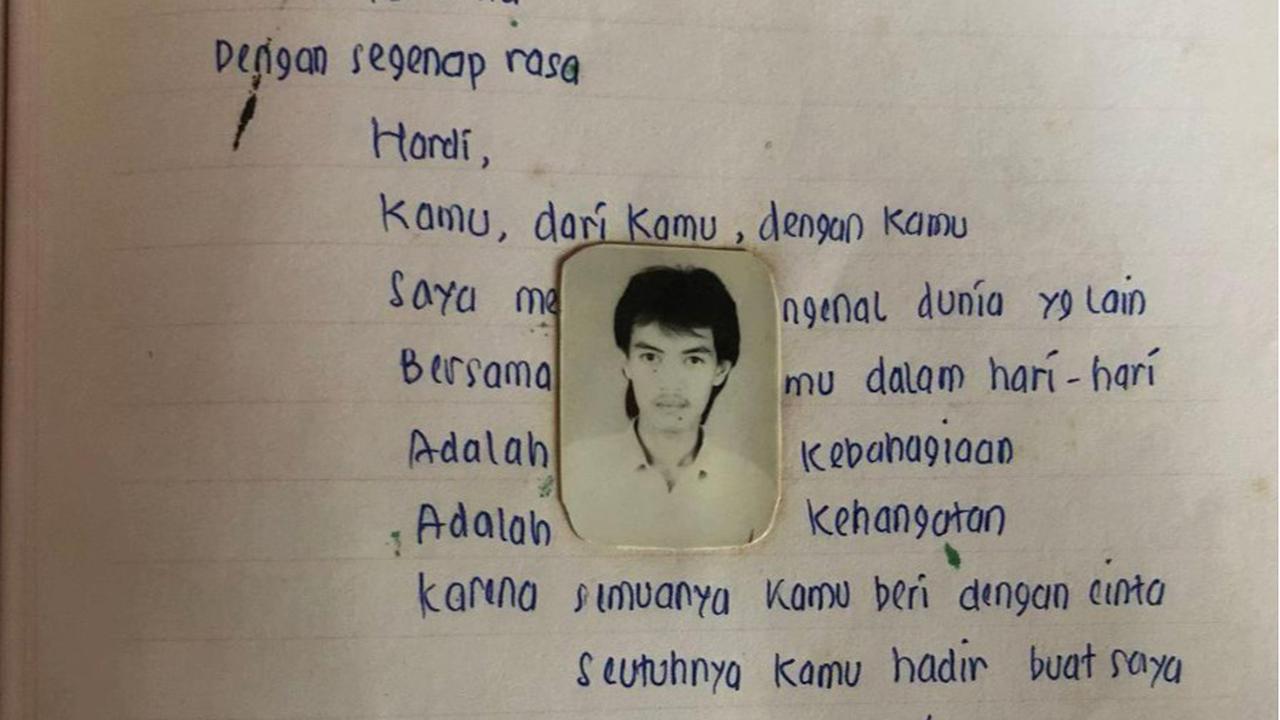 Dengan segenap rasa
Hardi,
Kamu, dari Kamu, dengan Kamu
Saya me ngenal dunia yg lain
Bersama mu dalam hari-hari
Adalah Kebahagiaan
Adalah Kehangatan
Karena semuanya Kamu beri dengan cinta
Seutuhnya Kamu hadir buat saya